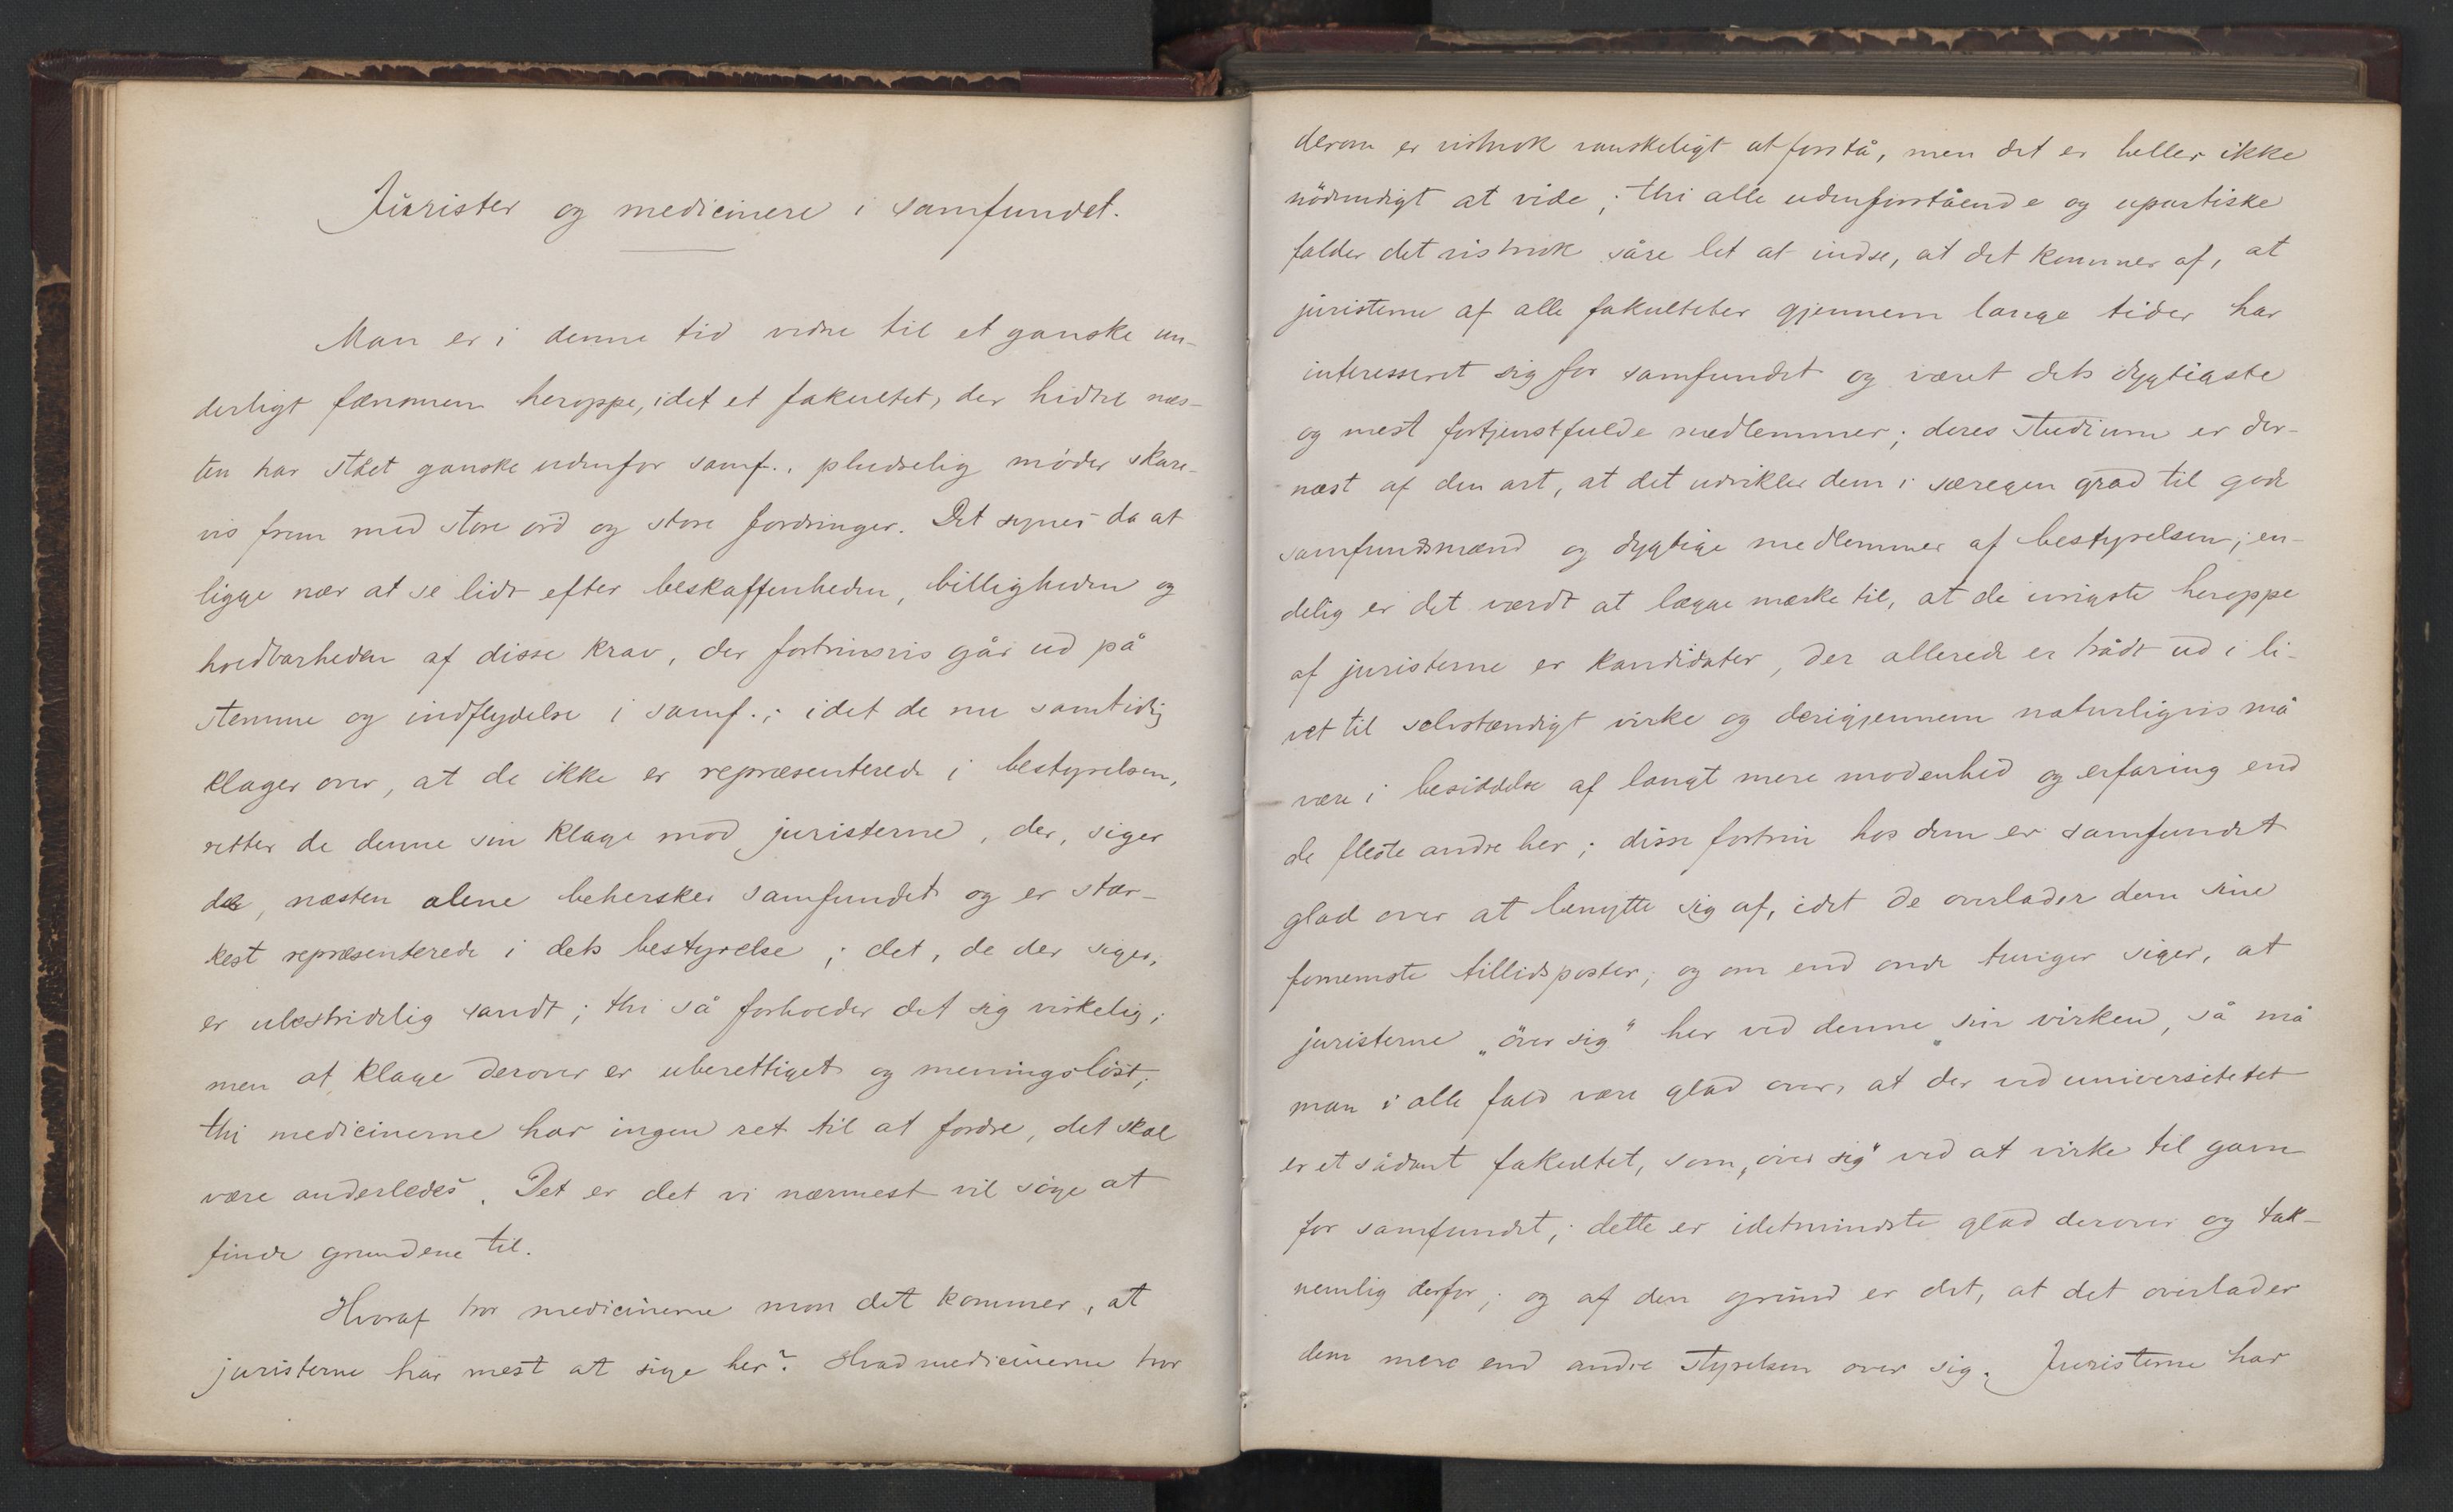 Jurister og medicinere i samfundet.
Man er i denne tid vidne til et ganske un-
derligt fænomen heroppe, idet et fakultet, der hidtil næs-
ten har stået ganske udenfor samf., pludselig møder skare-
vis frem med store ord og store fordringer. Det synes da at
ligge nær at se lidt efter beskaffenheden, billigheden og
holdbarheden af disse krav, der fortrinsvis går ud på
stemme og indflydelse i samf.; idet de nu samtidig
klager over, at de ikke er repræsenterede i bestyrelsen,
retter de denne sin klage mod juristerne, der, siger
de, næsten alene behersker samfundet og er stær-
kest repræsenterede i dets bestyrelse; det, de der siger,
er ubestridelig sandt; thi så forholder det sig virkelig;
men at klage derover er uberettiget og meningsløst;
thi medicinerne har ingen ret til at fordre, det skal
være anderledes. Det er det vi nærmest vil søge at
finde grundene til.
Hvoraf tror medicinerne mon det kommer, at
juristerne har mest at sige her? Hvad medicinerne tror
derom er vistnok vanskeligt at forstå, men det er heller ikke
nödvendigt at vide; thi alle udenforstående og upartiske
falder det vistnok såre let at indse, at det kommer af, at
juristerne af alle fakulteter gjennem lange tider har
interesseret sig for samfundet og været dets dygtigste
og mest fortjenstfulde medlemmer; deres studium er der-
næst af den art, at det udvikler dem i særegen grad til gode
samfundsmænd og dygtige medlemmer af bestyrelsen; en-
delig er det værdt at lægge mærke til, at de ivrigste heroppe
af juristerne er kandidater, der allerede er trådt ud i li-
vet til selvstændigt virke og derigjennem naturligvis må
være i besiddelse af langt mere modenhed og erfaring end
de fleste andre her; disse fortrin hos dem er samfundet
glad over at benytte sig af, idet de overlader dem sine
fornemste tillidsposter; og om end onde tunger siger, at
juristerne „över sig" her ved denne sin virken, så må
man i alle fald være glad over, at der ved universitetet
er et sådant fakultet, som „över sig" ved at virke til gavn
for samfundet; dette er idetmindste glad derover og tak-
nemlig derfor; og af den grund er det, at det overlader
dem mere end andre styrelsen over sig. Juristerne har